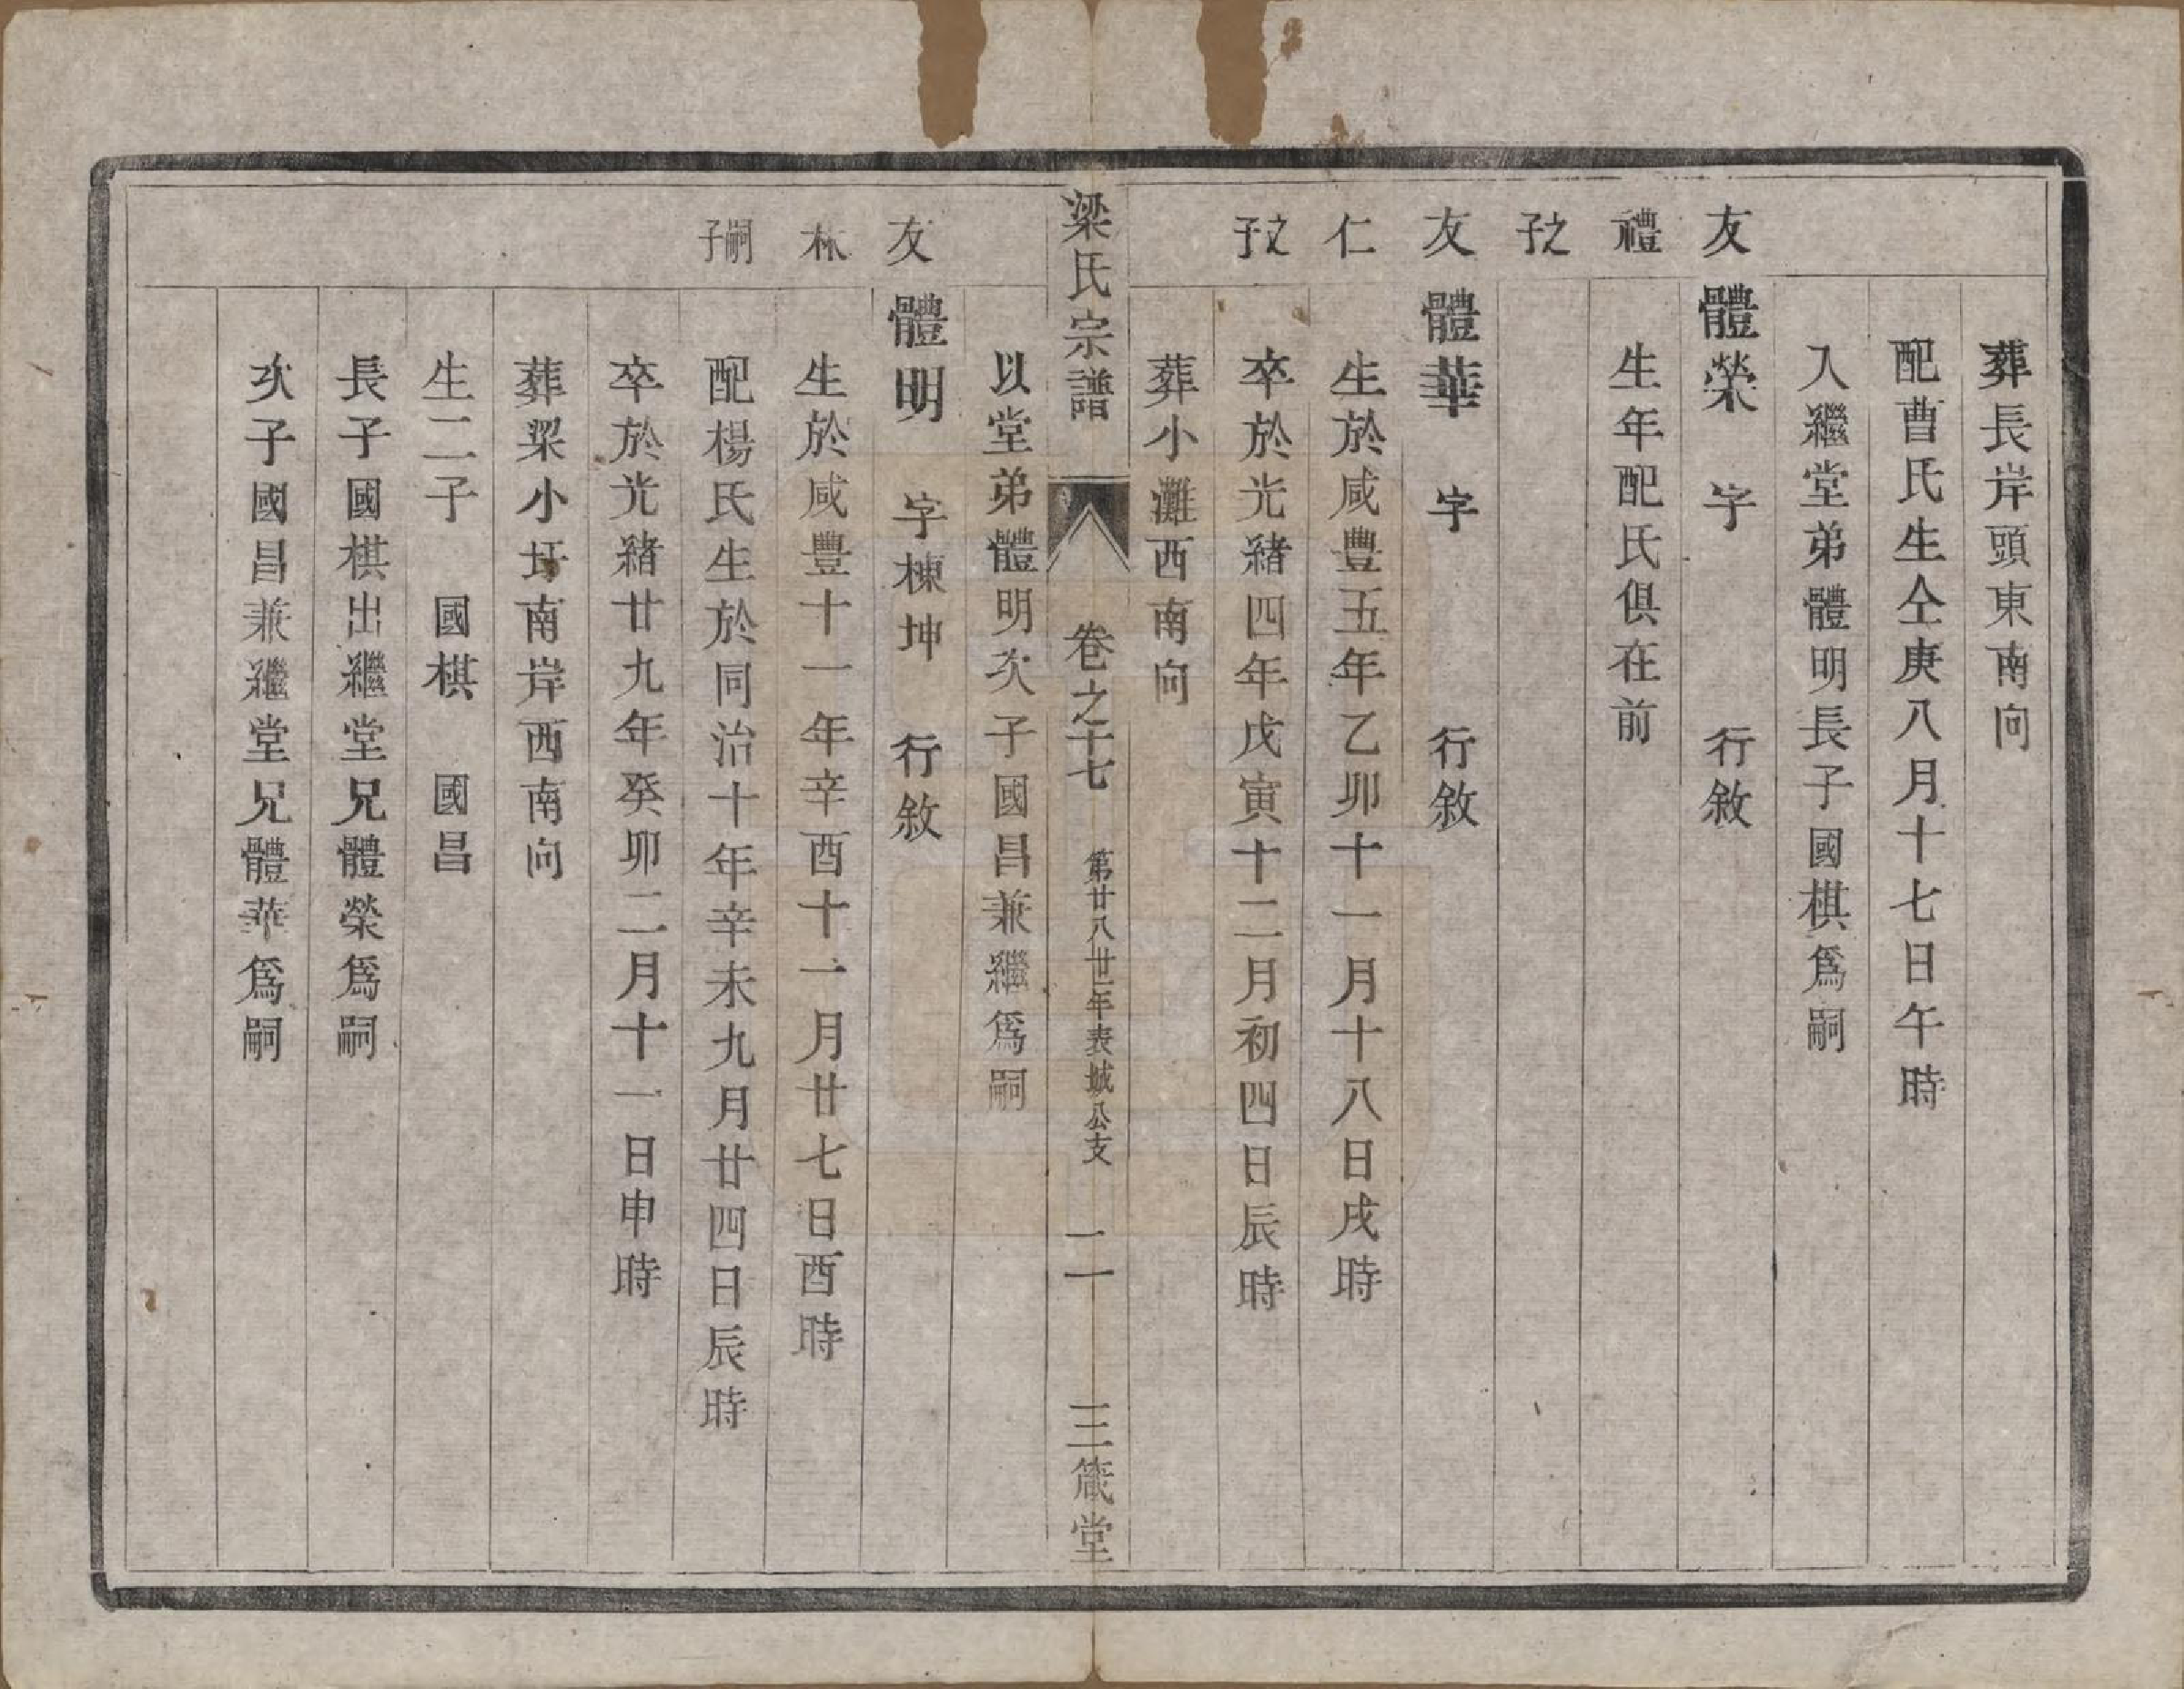 葬長岸頭東南向
配曹氏生仝庚八月十七日午時
入繼堂弟體明長子國棋爲嗣
友體榮　字　行敘
禮　生年配氏俱在前
之子
友體華　字　行敘
仁　生於咸豐五年乙卯十一月十八日戌時
之子　卒於光緒四年戊寅十二月初四日辰時
葬小灘西南向
梁氏宗譜　卷之十七　第廿八世年表城公支　二一　三箴堂
以堂弟體明次子國昌兼繼爲嗣
友體明　字棟坤　行敘
林　生於咸豐十一年辛酉十一月廿七日酉時
嗣子　配楊氏生於同治十年辛未九月廿四日辰時
卒於光緒廿九年癸卯二月十一日申時
葬梁小圩南岸西南向
生二子　國棋　國昌
長子國棋出繼堂兄體榮爲嗣
次子國昌兼繼堂兄體華爲嗣